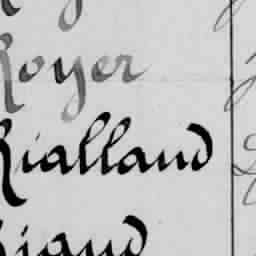 Royer
Rialland
Rigaud